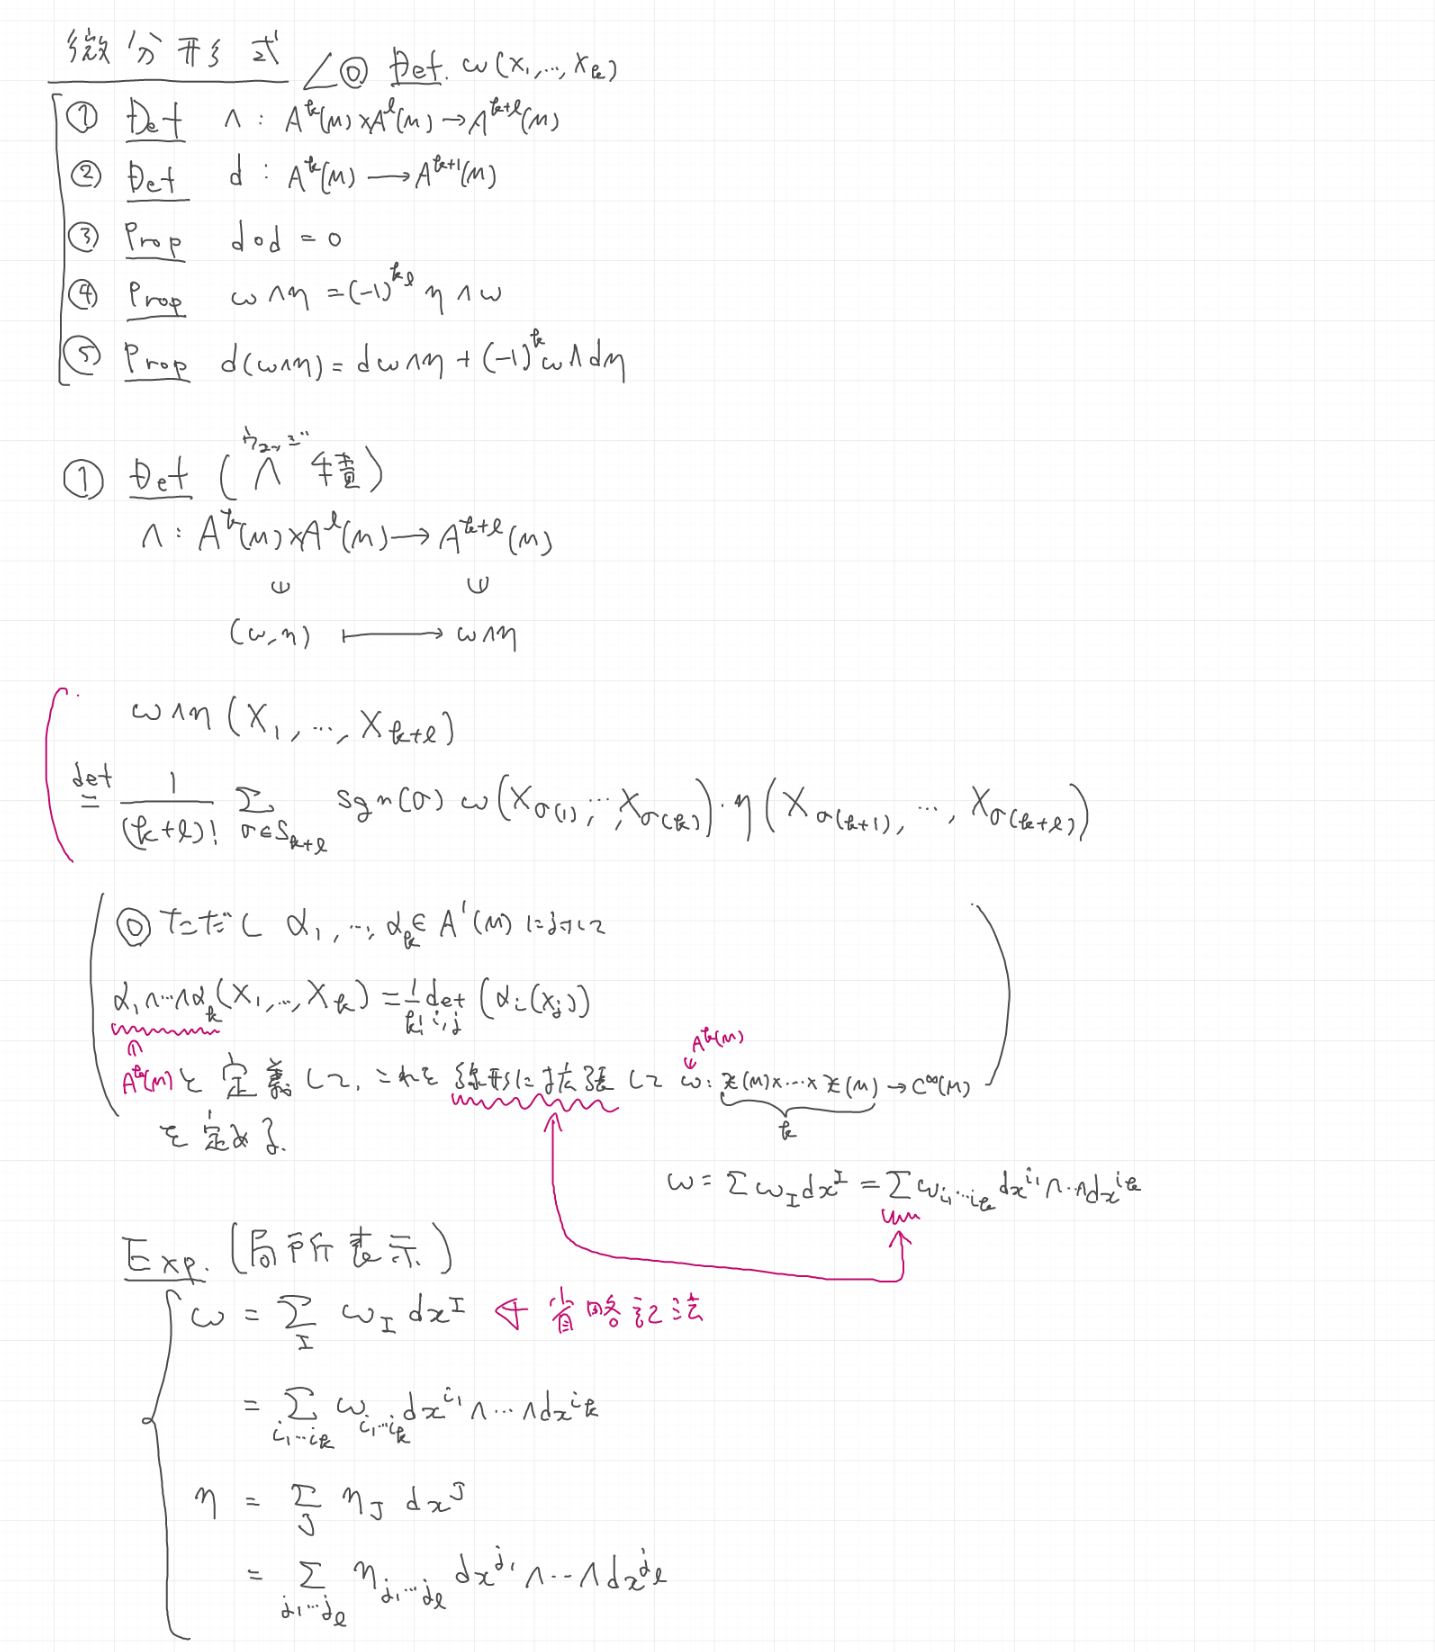 微分形式
⓪ Def. ω(X₁,…,X_k)
① Def ∧ : A^k(M)×A^l(M)→A^{k+l}(M)
② Def d : A^k(M)⟶A^{k+1}(M)
③ Prop d∘d = 0
④ Prop ω∧η = (-1)^{kl} η∧ω
⑤ Prop d(ω∧η) = dω∧η + (-1)^k ω∧dη
ウェッジ
① Def (∧ 積)
∧ : A^k(M)×A^l(M)⟶A^{k+l}(M)
(ω,η) ⟼ ω∧η
ω∧η(X₁,…,X_{k+l})
def= 1/(k+l)! Σ_{σ∈S_{k+l}} sgn(σ) ω(X_{σ(1)},…,X_{σ(k)})・η(X_{σ(k+1)},…,X_{σ(k+l)})
⓪ ただし α₁,…,α_k ∈ A¹(M) に対して
α₁∧…∧α_k(X₁,…,X_k) = 1/k! det_{i,j}(α_i(X_j))
A^k(M)
A^k(M) と定義して、これを線形に拡張して ω: 𝔛(M)×…×𝔛(M)→C^∞(M)
k
を定める.
ω = Σω_I dx^I = Σω_{i₁…i_k} dx^{i₁}∧…∧dx^{i_k}
Exp. (局所表示)
ω = Σ_I ω_I dx^I ← 省略記法
= Σ_{i₁…i_k} ω_{i₁…i_k} dx^{i₁}∧…∧dx^{i_k}
η = Σ_J η_J dx^J
= Σ_{j₁…j_l} η_{j₁…j_l} dx^{j₁}∧…∧dx^{j_l}